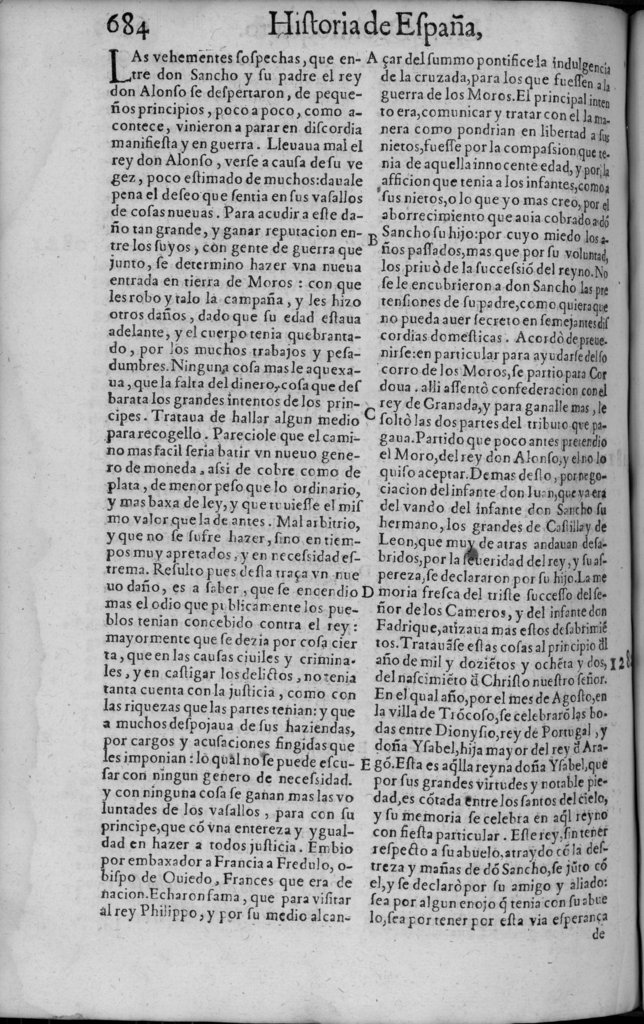 684 Historia de España,
LAs vehementes sospechas, que en-
tre don Sancho y su padre el rey
don Alonso se despertaron, de peque-
ños principios, poco a poco, como a-
contece, vinieron a parar en discordia
manifiesta y en guerra. Lleuaua mal el
rey don Alonso, verse a causa de su ve
gez, poco estimado de muchos: dauale
pena el deseo que sentia en sus vasallos
de cosas nueuas. Para acudir a este da-
ño tan grande, y ganar reputacion en-
tre los suyos, con gente de guerra que
junto, se determino hazer vna nueua
entrada en tierra de Moros: con que
les robo y talo la campaña, y les hizo
otros daños, dado que su edad estaua
adelante, y el cuerpo tenia quebranta-
do, por los muchos trabajos y pesa-
dumbres. Ninguna cosa mas le aquexa-
ua, que la falta del dinero, cosa que des
barata los grandes intentos de los prin-
cipes. Trataua de hallar algun medio
para recogello. Pareciole que el cami-
no mas facil seria batir vn nueuo gene-
ro de moneda, assi de cobre como de
plata, de menor peso que lo ordinario,
y mas baxa de ley, y que tuuiesse el mis
mo valor que la de antes. Mal arbitrio,
y que no se sufre hazer, sino en tiem-
pos muy apretados, y en necessidad es-
trema. Resulto pues desta traça vn nue
uo daño, es a saber, que se encendio
mas el odio que publicamente los pue-
blos tenian concebido contra el rey:
mayormente que se dezia por cosa cier
ta, que en las causas ciuiles y crimina-
les, y en castigar los delictos, no tenia
tanta cuenta con la justicia, como con
las riquezas que las partes tenian: y que
a muchos despojaua de sus haziendas,
por cargos y acusaciones fingidas que
les imponian: lo qual no se puede escu-
sar con ningun genero de necessidad.
y con ninguna cosa se ganan mas las vo
luntades de los vasallos, para con su
principe, que cō vna entereza y ygual-
dad en hazer a todos justicia. Embio
por embaxador a Francia a Fredulo, o-
bispo de Ouiedo, Frances que era de
nacion. Echaron fama, que para visitar
al rey Philippo, y por su medio alcan-
A çar del summo pontifice la indulgencia
de la cruzada, para los que fuessen a la
guerra de los Moros. El principal inten
to era, comunicar y tratar con el la ma-
nera como pondrian en libertad a sus
nietos, fuesse por la compassion que te-
nia de aquella innocente edad, y por la
afficion que tenia a los infantes, como a
sus nietos, o lo que yo mas creo, por el
aborrecimiento que auia cobrado a dō
B Sancho su hijo: por cuyo miedo los a-
ños passados, mas que por su voluntad,
los priuò de la successiō del reyno. No
se le encubrieron a don Sancho las pre
tensiones de su padre, como quiera que
no pueda auer secreto en semejantes dis
cordias domesticas. Acordò de preue-
nirse: en particular para ayudarse del so
corro de los Moros, se partio para Cor
doua. alli assentò confederacion con el
rey de Granada, y para ganalle mas, le
C soltò las dos partes del tributo que pa-
gaua. Partido que poco antes pretendio
el Moro, del rey don Alonso, y el no lo
quiso aceptar. Demas desto, por nego-
ciacion del infante don Iuan, que ya era
del vando del infante don Sancho su
hermano, los grandes de Castilla y de
Leon, que muy de atras andauan desa-
bridos, por la seueridad del rey, y su as-
pereza, se declararon por su hijo. La me
D moria fresca del triste successo del se-
ñor de los Cameros, y del infante don
Fadrique, atizaua mas estos desabrimiē
tos. Tratauāse estas cosas al principio dl
año de mil y doziētos y ochēta y dos, 128
del nascimiēto đ Christo nuestro señor.
En el qual año, por el mes de Agosto, en
la villa de Trōcoso, se celebrarō las bo-
das entre Dionysio, rey de Portugal, y
doña Ysabel, hija mayor del rey đ Ara-
E gō. Esta es aq̄lla reyna doña Ysabel, que
por sus grandes virtudes y notable pie-
dad, es cōtada entre los santos del cielo,
y su memoria se celebra en aq̄l reyno
con fiesta particular. Este rey, sin tener
respecto a su abuelo, atraydo cō la des-
treza y mañas de dō Sancho, se jūto cō
el, y se declarò por su amigo y aliado:
sea por algun enojo q̄ tenia con su abue
lo, sea por tener por esta via esperança
de